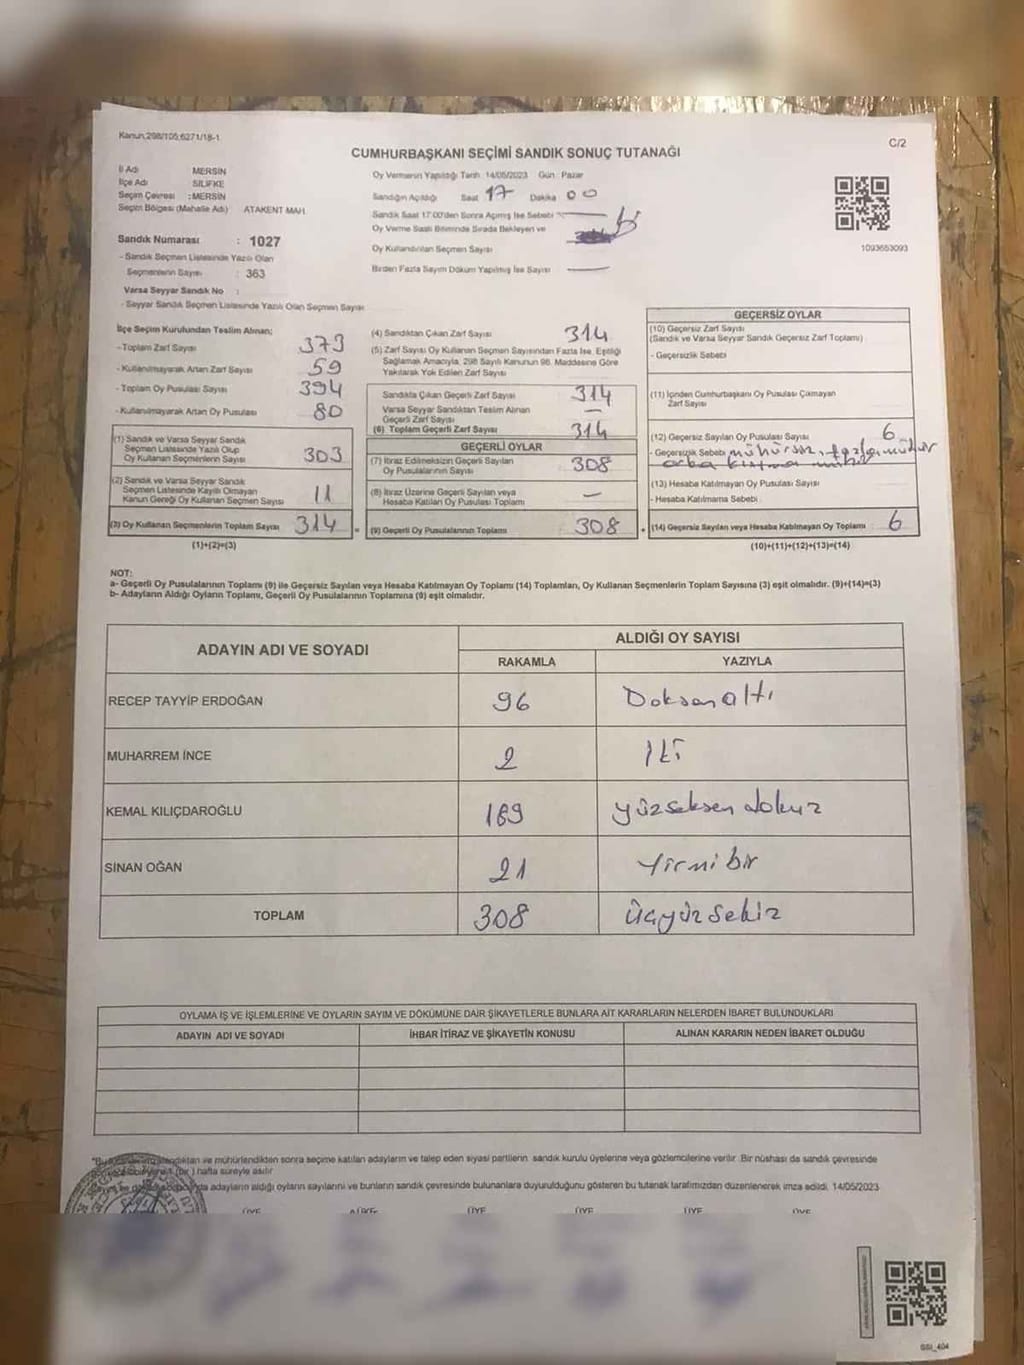 Kanun:298/105;6271/18-1
C/2
CUMHURBAŞKANI SEÇİMİ SANDIK SONUÇ TUTANAĞI
İl Adı MERSİN
İlçe Adı SİLİFKE
Seçim Çevresi : MERSİN
Seçim Bölgesi (Mahalle Adı) ATAKENT MAH.
Sandık Numarası : 1027
- Sandık Seçmen Listesinde Yazılı Olan
Seçmenlerin Sayısı : 363
Varsa Seyyar Sandık No :
- Seyyar Sandık Seçmen Listesinde Yazılı Olan Seçmen Sayısı
Oy Vermenin Yapıldığı Tarih 14/05/2023 Gün: Pazar
Sandığın Açıldığı Saat 17 Dakika 00
Sandık Saat 17:00'den Sonra Açılmış İse Sebebi
Oy Verme Saati Bitiminde Sırada Bekleyen ve
Oy Kullandırılan Seçmen Sayısı
Birden Fazla Sayım Döküm Yapılmış İse Sayısı
1093653093
İlçe Seçim Kurulundan Teslim Alınan;
- Toplam Zarf Sayısı 373
- Kullanılmayarak Artan Zarf Sayısı 59
- Toplam Oy Pusulası Sayısı 394
- Kullanılmayarak Artan Oy Pusulası 80
(1) Sandık ve Varsa Seyyar Sandık
Seçmen Listesinde Yazılı Olup
Oy Kullanan Seçmenlerin Sayısı 303
(2) Sandık ve Varsa Seyyar Sandık
Seçmen Listesinde Kayıtlı Olmayan
Kanun Gereği Oy Kullanan Seçmen Sayısı 11
(3) Oy Kullanan Seçmenlerin Toplam Sayısı 314
(1)+(2)=(3)
(4) Sandıktan Çıkan Zarf Sayısı 314
(5) Zarf Sayısı Oy Kullanan Seçmen Sayısından Fazla İse, Eşitliği
Sağlamak Amacıyla, 298 Sayılı Kanunun 98. Maddesine Göre
Yakılarak Yok Edilen Zarf Sayısı
Sandıkta Çıkan Geçerli Zarf Sayısı 314
Varsa Seyyar Sandıktan Teslim Alınan
Geçerli Zarf Sayısı –
(6) Toplam Geçerli Zarf Sayısı 314
GEÇERLİ OYLAR
(7) İtiraz Edilmeksizin Geçerli Sayılan
Oy Pusulalarının Sayısı 308
(8) İtiraz Üzerine Geçerli Sayılan veya
Hesaba Katılan Oy Pusulası Toplamı –
= (9) Geçerli Oy Pusulalarının Toplamı 308
GEÇERSİZ OYLAR
(10) Geçersiz Zarf Sayısı
(Sandık ve Varsa Seyyar Sandık Geçersiz Zarf Toplamı)
- Geçersizlik Sebebi
(11) İçinden Cumhurbaşkanı Oy Pusulası Çıkmayan
Zarf Sayısı
(12) Geçersiz Sayılan Oy Pusulası Sayısı 6
- Geçersizlik Sebebi mühürsüz, fazla mühür
(13) Hesaba Katılmayan Oy Pusulası Sayısı
- Hesaba Katılmama Sebebi
+ (14) Geçersiz Sayılan veya Hesaba Katılmayan Oy Toplamı 6
(10)+(11)+(12)+(13)=(14)
NOT:
a- Geçerli Oy Pusulalarının Toplamı (9) ile Geçersiz Sayılan veya Hesaba Katılmayan Oy Toplamı (14) Toplamları, Oy Kullanan Seçmenlerin Toplam Sayısına (3) eşit olmalıdır. (9)+(14)=(3)
b- Adayların Aldığı Oyların Toplamı, Geçerli Oy Pusulalarının Toplamına (9) eşit olmalıdır.
ADAYIN ADI VE SOYADI ALDIĞI OY SAYISI
RAKAMLA YAZIYLA
RECEP TAYYİP ERDOĞAN 96 Doksan altı
MUHARREM İNCE 2 İki
KEMAL KILIÇDAROĞLU 189 yüzseksen dokuz
SİNAN OĞAN 21 Yirmi bir
TOPLAM 308 üçyüz sekiz
OYLAMA İŞ VE İŞLEMLERİNE VE OYLARIN SAYIM VE DÖKÜMÜNE DAİR ŞİKAYETLERLE BUNLARA AİT KARARLARIN NELERDEN İBARET BULUNDUKLARI
ADAYIN ADI VE SOYADI İHBAR İTİRAZ VE ŞİKAYETİN KONUSU ALINAN KARARIN NEDEN İBARET OLDUĞU
ve mühürlendikten sonra seçime katılan adayların ve talep eden siyasi partilerin sandık kurulu üyelerine veya gözlemcilerine verilir. Bir nüshası da sandık çevresinde
(bir) hafta süreyle asılır
adayların aldığı oyların sayılarını ve bunların sandık çevresinde bulunanlara duyurulduğunu gösteren bu tutanak tarafımızdan düzenlenerek imza edildi. 14/05/2023
ÜYE ÜYE ÜYE ÜYE ÜYE
GSI_404